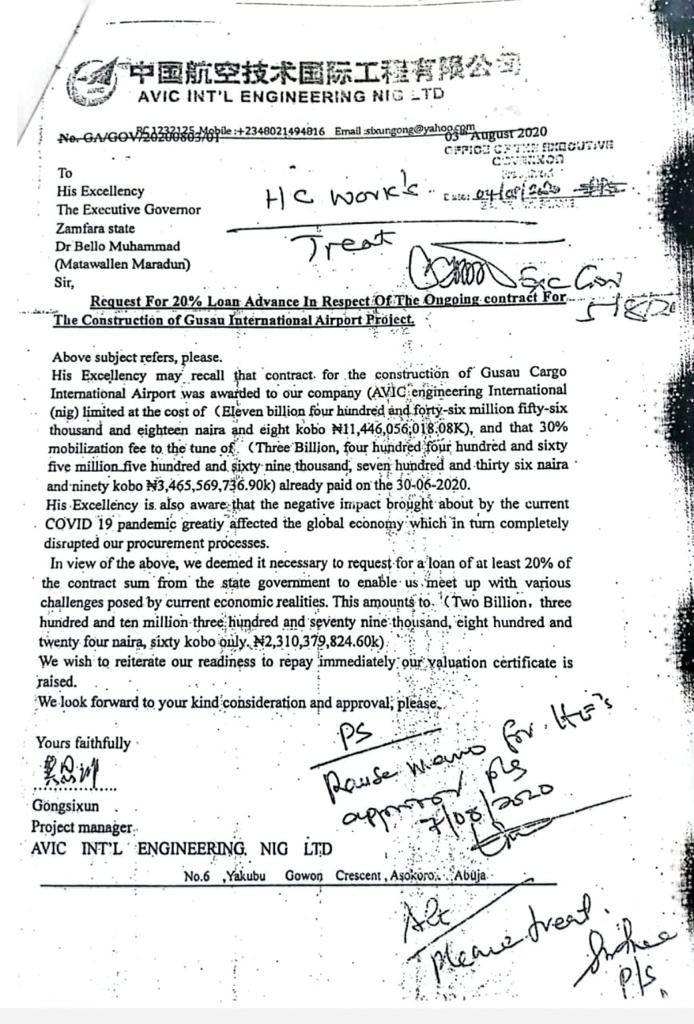 中国航空技术国际工程有限公司
AVIC INT'L ENGINEERING NIG LTD
RC1232125 Mobile:+2348021494816 Email:sixungong@yahoo.com
No. GA/GOV/20200803/01 03rd August 2020
OFFICE OF THE EXECUTIVE
GOVERNOR
To
His Excellency
The Executive Governor
Zamfara state
Dr Bello Muhammad
(Matawallen Maradun)
Sir,
HC Work's
Treat
04/08/2020
Exc Gov
5/8/20
Request For 20% Loan Advance In Respect Of The Ongoing contract For
The Construction of Gusau International Airport Project.
Above subject refers, please.
His Excellency may recall that contract for the construction of Gusau Cargo
International Airport was awarded to our company (AVIC engineering International
(nig) limited at the cost of (Eleven billion four hundred and forty-six million fifty-six
thousand and eighteen naira and eight kobo ₦11,446,056,018.08K), and that 30%
mobilization fee to the tune of (Three Billion, four hundred four hundred and sixty
five million five hundred and sixty nine thousand, seven hundred and thirty six naira
and ninety kobo ₦3,465,569,736.90k) already paid on the 30-06-2020.
His Excellency is also aware that the negative impact brought about by the current
COVID 19 pandemic greatly affected the global economy which in turn completely
disrupted our procurement processes.
In view of the above, we deemed it necessary to request for a loan of at least 20% of
the contract sum from the state government to enable us meet up with various
challenges posed by current economic realities. This amounts to (Two Billion, three
hundred and ten million three hundred and seventy nine thousand, eight hundred and
twenty four naira, sixty kobo only. ₦2,310,379,824.60k)
We wish to reiterate our readiness to repay immediately our valuation certificate is
raised.
We look forward to your kind consideration and approval, please.
Yours faithfully
Gongsixun
Project manager
AVIC INT'L ENGINEERING NIG LTD
No.6 ,Yakubu Gowon Crescent,Asokoro, Abuja
PS
Rause memo for HE's
approval pls
7/08/2020
please treat.
P/S